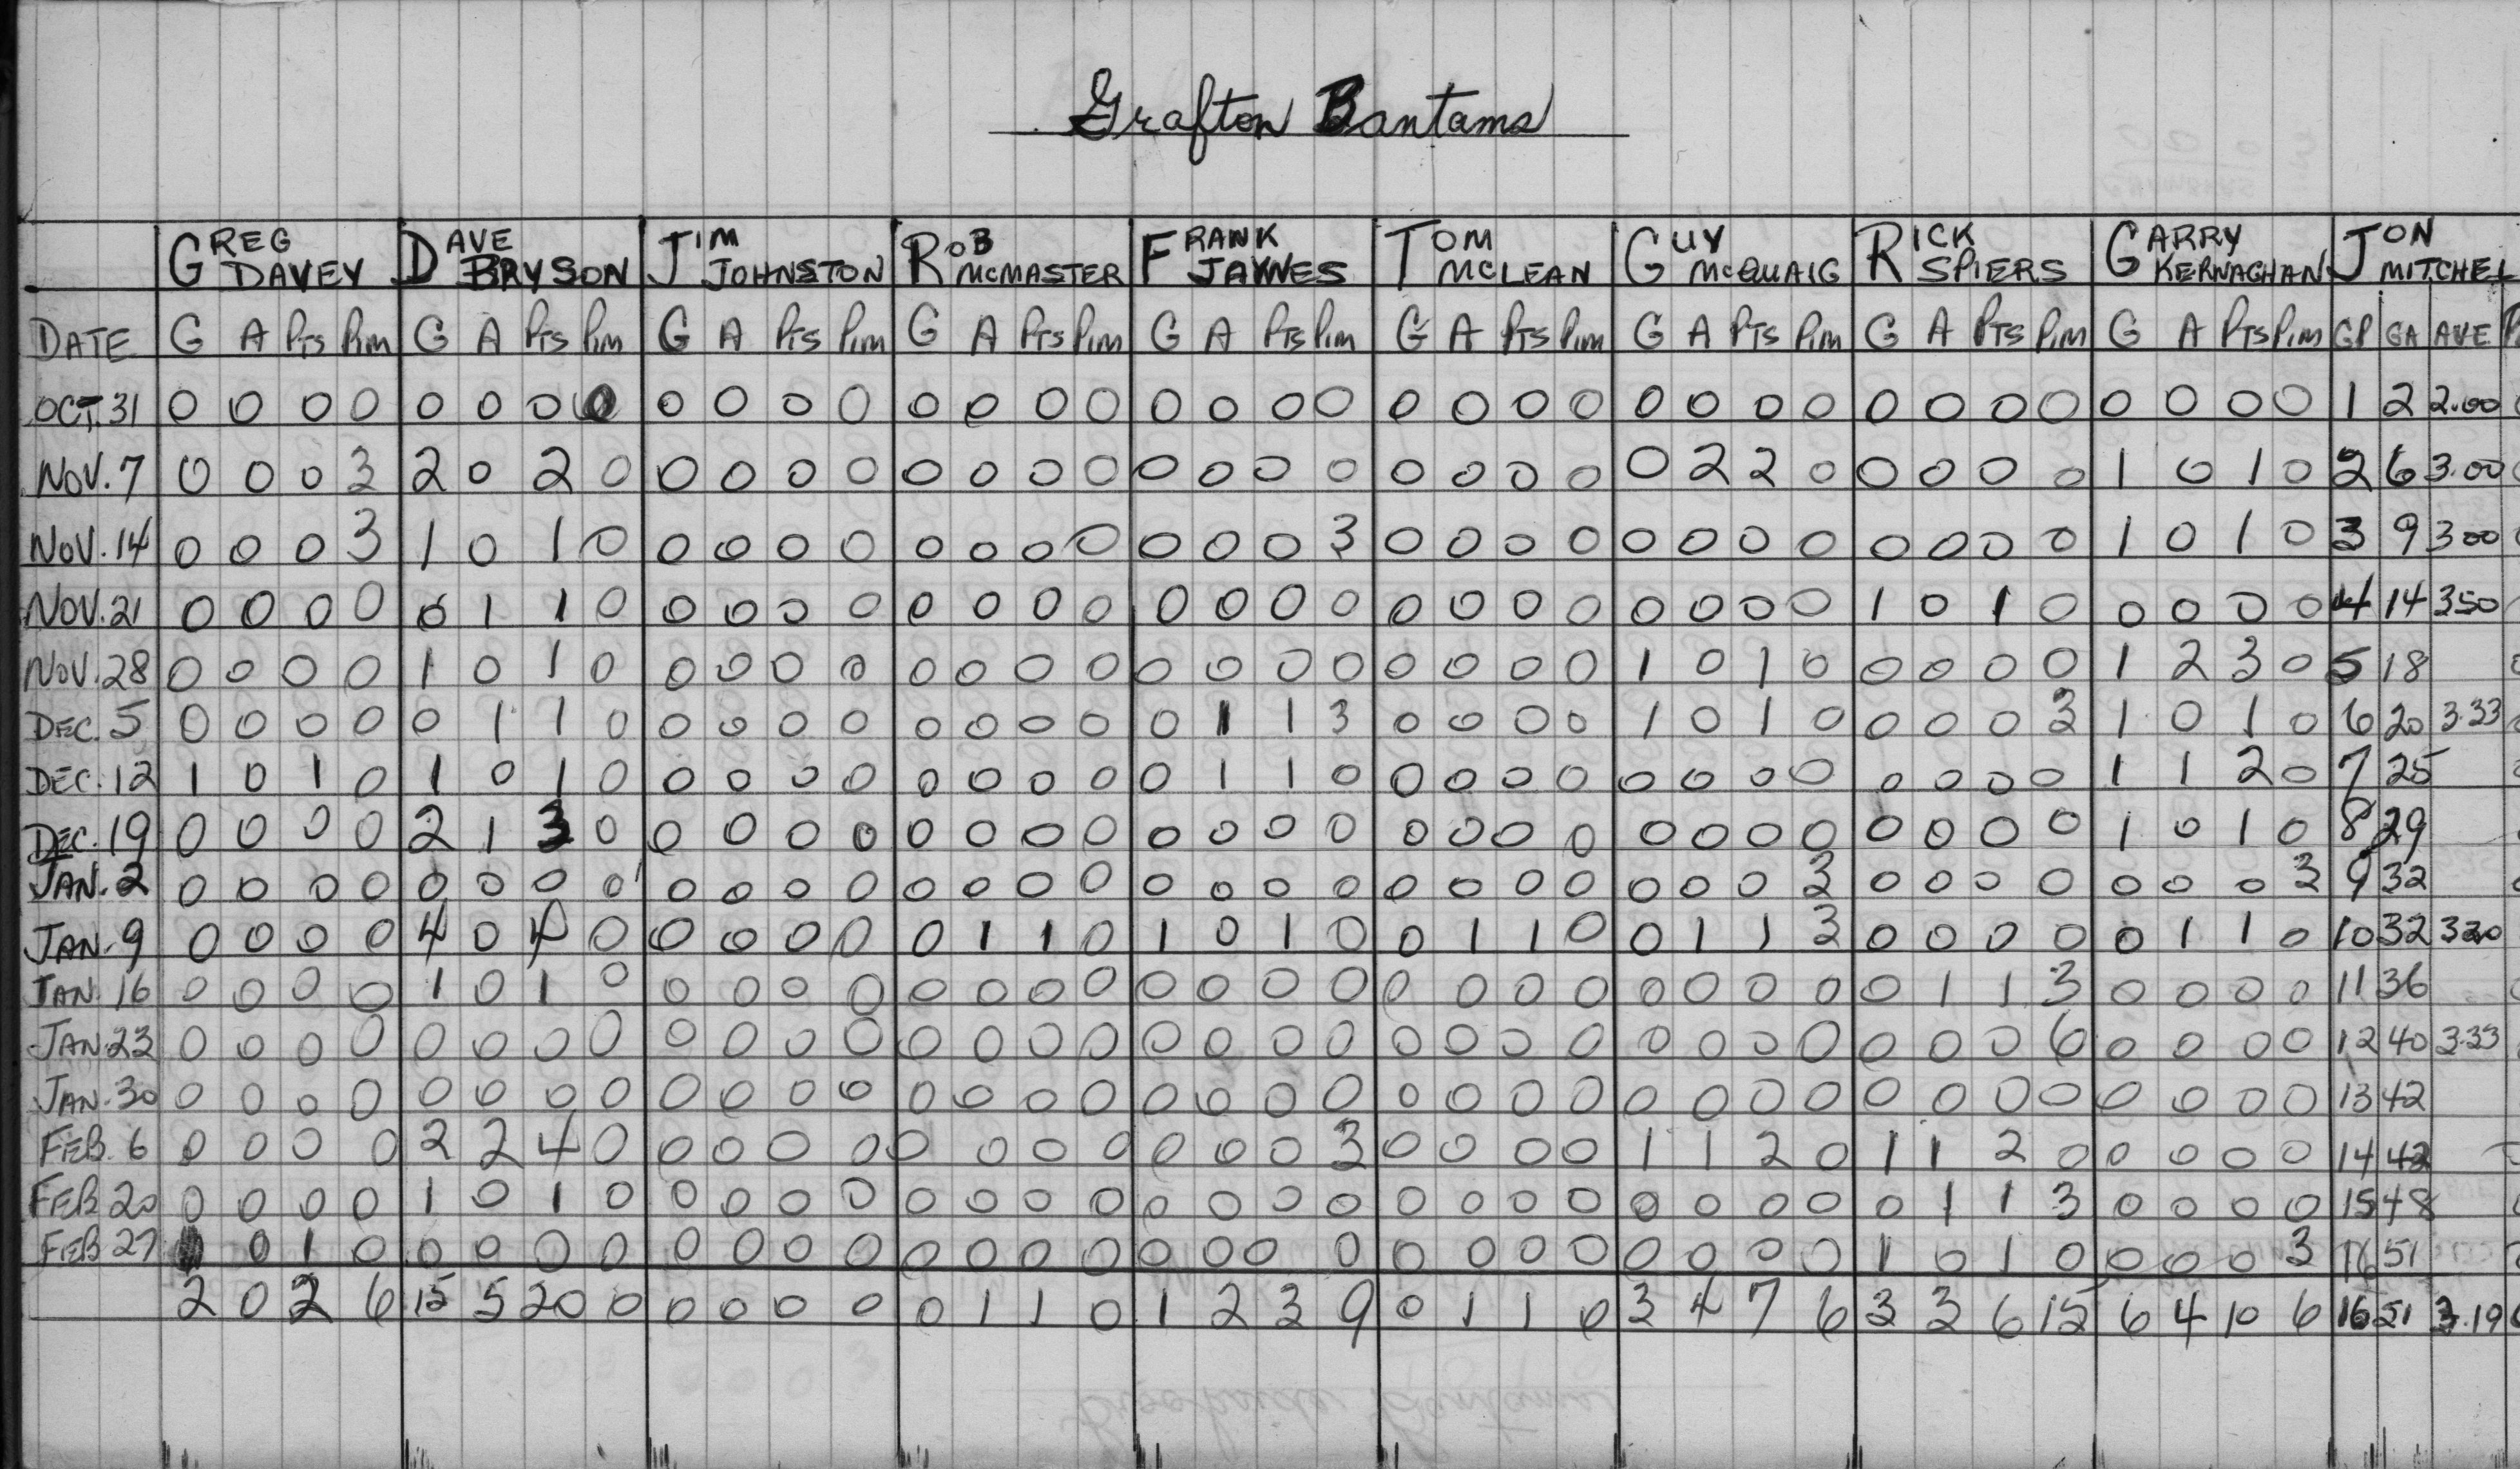 Grafton Bantams
GREG DAVEY DAVE BRYSON JIM JOHNSTON ROB MCMASTER FRANK JAYNES TOM MCLEAN GUY MCQUAIG RICK SPIERS GARRY KERNAGHAN JON MITCHEL
DATE G A Pts Pim G A Pts Pim G A Pts Pim G A Pts Pim G A Pts Pim G A Pts Pim G A Pts Pim G A Pts Pim G A Pts Pim GP GA AVE
OCT. 31 0 0 0 0 0 0 0 0 0 0 0 0 0 0 0 0 0 0 0 0 0 0 0 0 0 0 0 0 0 0 0 0 0 0 0 0 1 2 2.00
NOV. 7 0 0 0 3 2 0 2 0 0 0 0 0 0 0 0 0 0 0 0 0 0 0 0 0 0 2 2 0 0 0 0 0 1 0 1 0 2 6 3.00
NOV. 14 0 0 0 3 1 0 1 0 0 0 0 0 0 0 0 0 0 0 0 3 0 0 0 0 0 0 0 0 0 0 0 0 1 0 1 0 3 9 300
NOV. 21 0 0 0 0 0 1 1 0 0 0 0 0 0 0 0 0 0 0 0 0 0 0 0 0 0 0 0 0 1 0 1 0 0 0 0 0 4 14 350
NOV. 28 0 0 0 0 1 0 1 0 0 0 0 0 0 0 0 0 0 0 0 0 0 0 0 0 1 0 1 0 0 0 0 0 1 2 3 0 5 18
DEC. 5 0 0 0 0 0 1 1 0 0 0 0 0 0 0 0 0 0 1 1 3 0 0 0 0 1 0 1 0 0 0 0 3 1 0 1 0 6 20 3.33
DEC. 12 1 0 1 0 1 0 1 0 0 0 0 0 0 0 0 0 0 1 1 0 0 0 0 0 0 0 0 0 0 0 0 0 1 1 2 0 7 25
DEC. 19 0 0 0 0 2 1 3 0 0 0 0 0 0 0 0 0 0 0 0 0 0 0 0 0 0 0 0 0 0 0 0 0 1 0 1 0 8 29
JAN. 2 0 0 0 0 0 0 0 0 0 0 0 0 0 0 0 0 0 0 0 0 0 0 0 0 0 0 0 3 0 0 0 0 0 0 0 3 9 32
JAN. 9 0 0 0 0 4 0 4 0 0 0 0 0 0 1 1 0 1 0 1 0 0 1 1 0 0 1 1 3 0 0 0 0 0 1 1 0 10 32 320
JAN. 16 0 0 0 0 1 0 1 0 0 0 0 0 0 0 0 0 0 0 0 0 0 0 0 0 0 0 0 0 0 1 1 3 0 0 0 0 11 36
JAN. 23 0 0 0 0 0 0 0 0 0 0 0 0 0 0 0 0 0 0 0 0 0 0 0 0 0 0 0 0 0 0 0 6 0 0 0 0 12 40 3.33
JAN. 30 0 0 0 0 0 0 0 0 0 0 0 0 0 0 0 0 0 0 0 0 0 0 0 0 0 0 0 0 0 0 0 0 0 0 0 0 13 42
FEB. 6 0 0 0 0 2 2 4 0 0 0 0 0 0 0 0 0 0 0 0 3 0 0 0 0 1 1 2 0 1 1 2 0 0 0 0 0 14 42
FEB 20 0 0 0 0 1 0 1 0 0 0 0 0 0 0 0 0 0 0 0 0 0 0 0 0 0 0 0 0 0 1 1 3 0 0 0 0 15 48
FEB 27 0 1 0 0 0 0 0 0 0 0 0 0 0 0 0 0 0 0 0 0 0 0 0 0 0 0 0 1 0 1 0 0 0 0 3 16 51
2 0 2 6 15 5 20 0 0 0 0 0 0 1 1 0 1 2 3 9 0 1 1 0 3 4 7 6 3 3 6 15 6 4 10 6 16 51 3.19